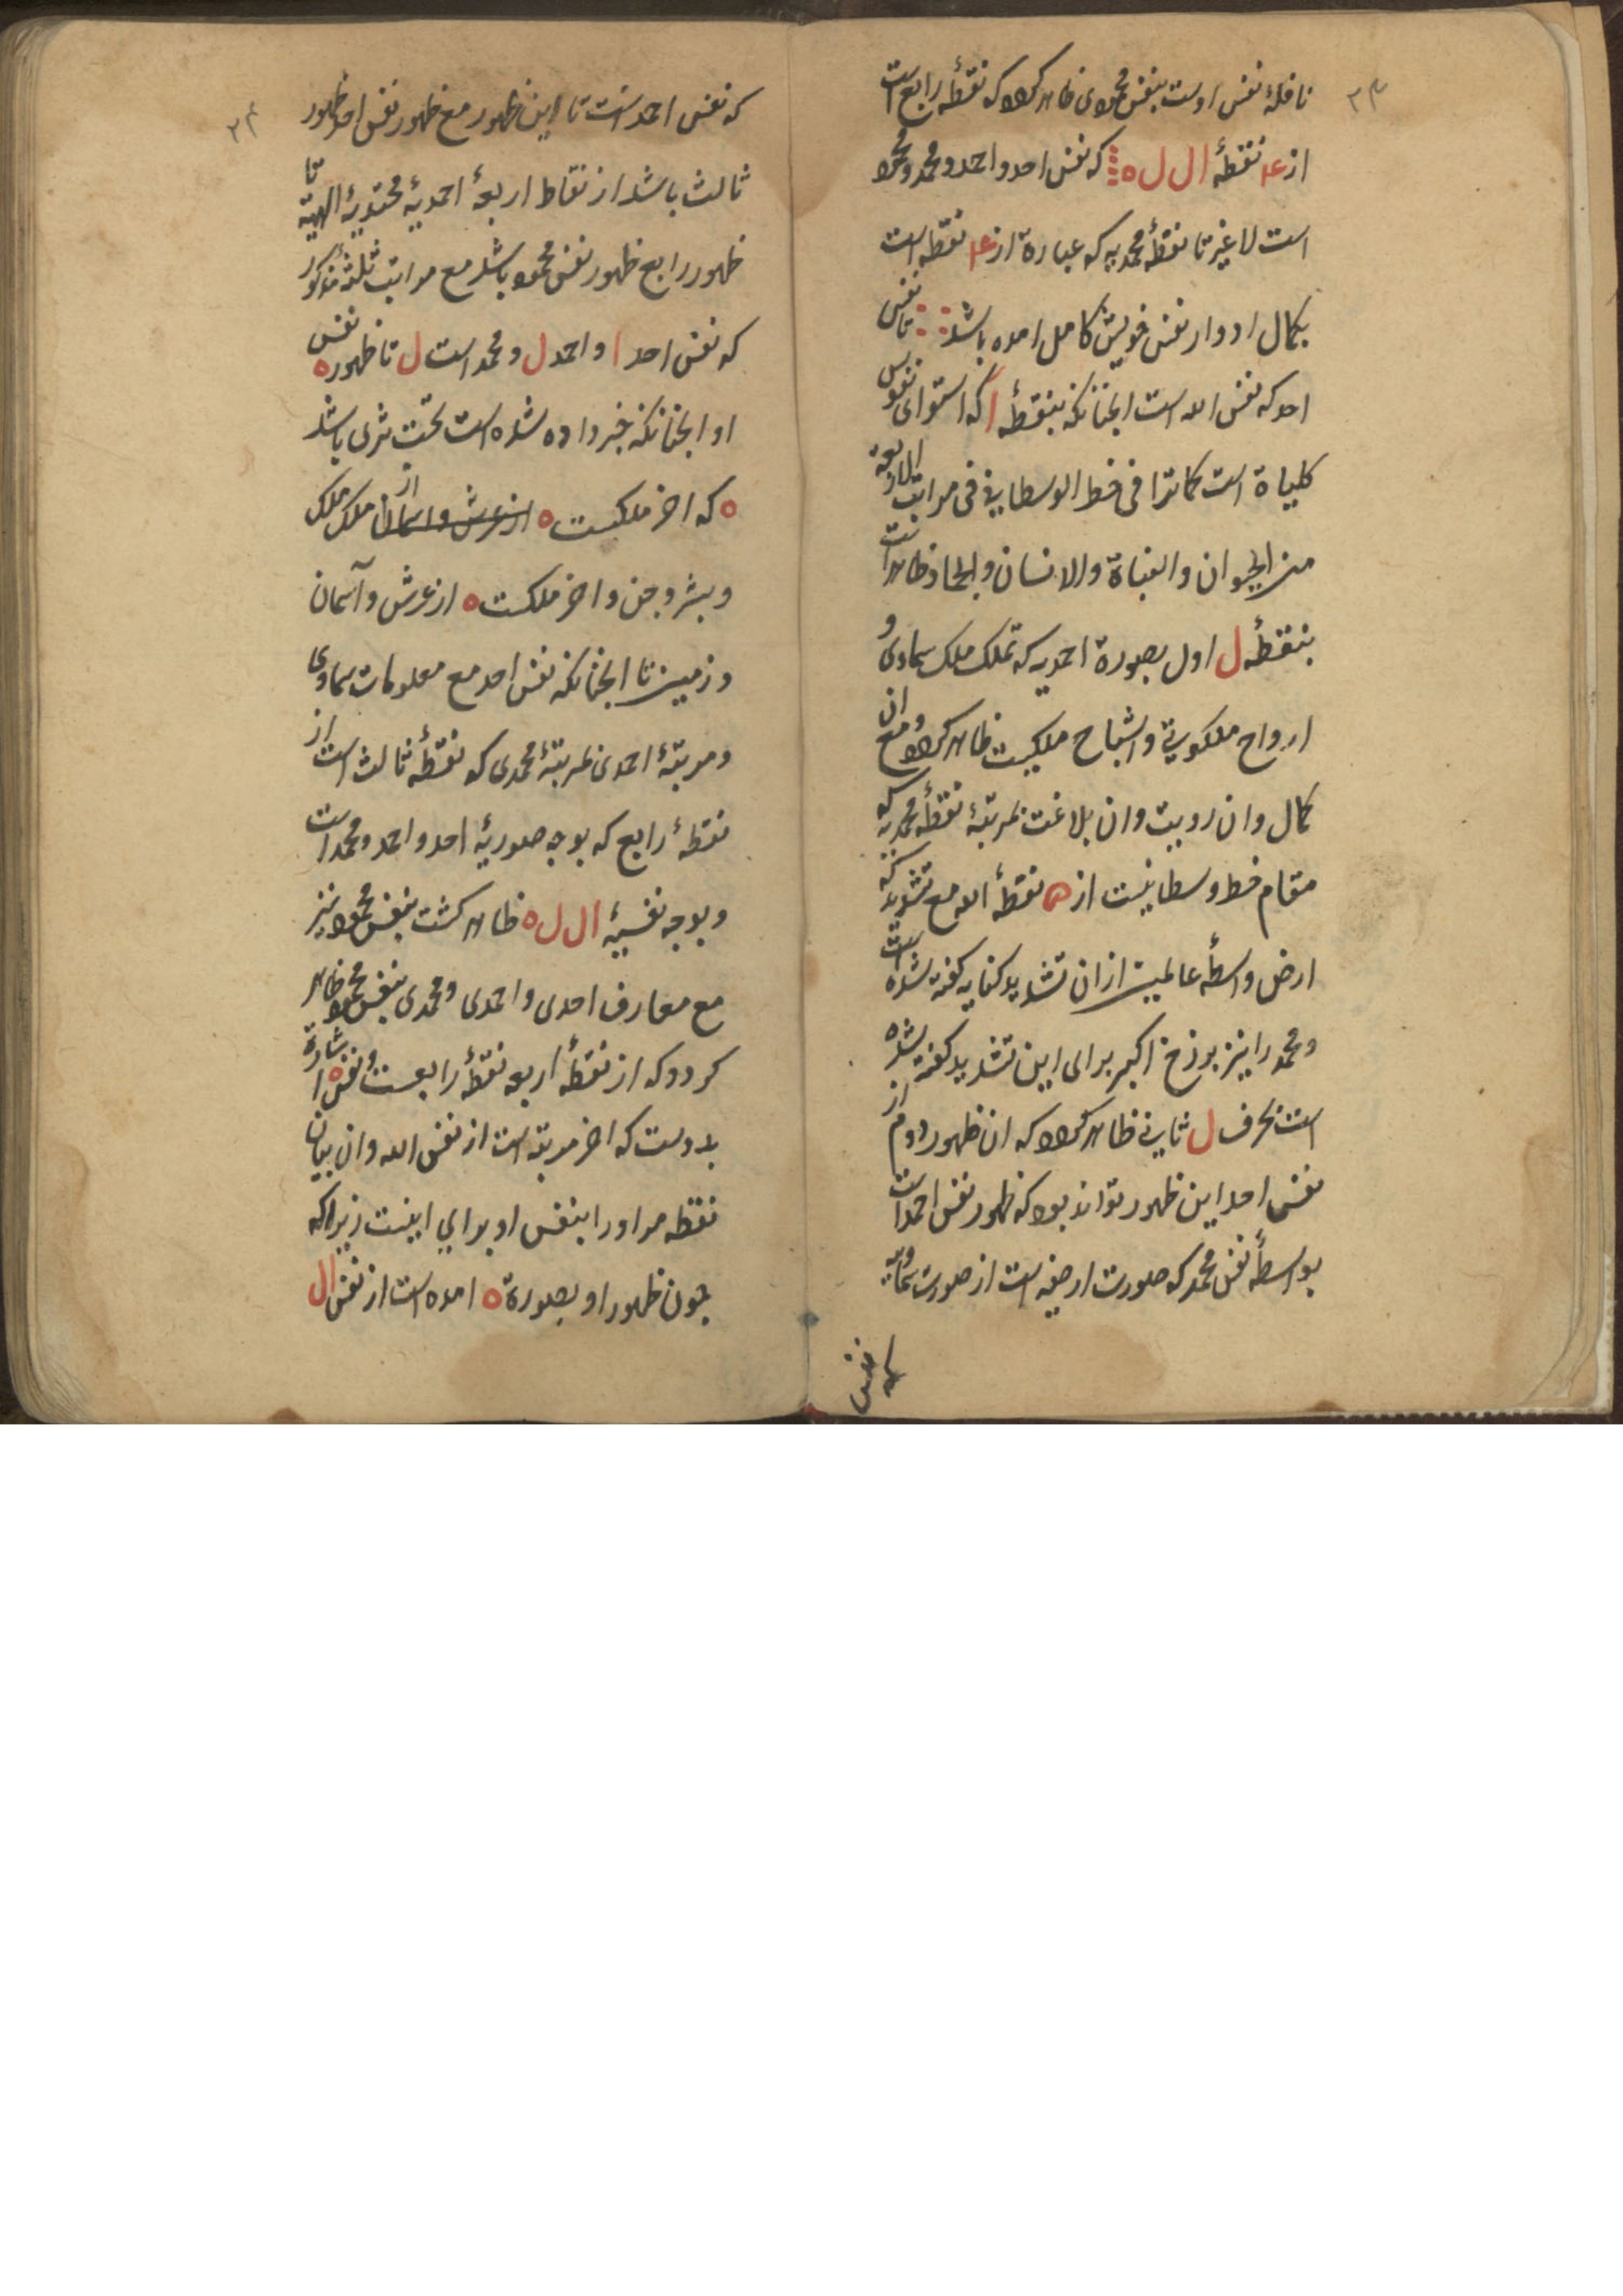 ۲۳
نافلهٔ نفس اوست بنفس محمودی ظاهر کردد که نقطهٔ رابع است
از ۴ نقطهٔ ال ل ه که نفس احد و احمد و محمد و محمود
است لا غیر تا نقطهٔ محمدیه که عبارة از ۴ نقطه است
بکمال ادوار نفس خویش کامل امده باشد تا نفس
احد که نفس الله است انچنانکه بنقطهٔ ا که استوای نفوس
کلیاة است کماترا فی خط الوسطانی فی مراتب الاربعة
من الحیوان و النباة والانسان و الجماد ظاهر است
بنقطهٔ ل اول بصورة احمدیه که تملک ملک سماوی و
ارواح ملکوتی و اشباح ملکیست ظاهر کردد و مع ان
کمال و ان رویت و ان بلاغت بمرتبهٔ نقطهٔ محمدیه که
مقام خط وسطانیست از ه نقطهٔ الله مع تشدید که
ارض واسطهٔ عالمین از ان تشدید کنایه کفته شده است
و محمد را نیز برزخ اکبر برای این تشدید کفته شده
است بحرف ل ثانی ظاهر کردد که ان ظهور دوم از
نفس احد این ظهور تواند بود که ظهور نفس احمد است
بواسطهٔ نفس محمد که صورت ارضیه است از صورت سماویه
که نفس
۲۴
که نفس احمد است تا این ظهور مع ظهور نفس احد ظهور
ثالث باشد از نقاط اربعهٔ احمدیهٔ محمدیهٔ الهیه تا
ظهور رابع ظهور نفس محمود باشد مع مراتب ثلثهٔ مذکور
که نفس احد ا و احمد ل و محمد است ل تا ظهور ه نفس
او انچنانکه خبر داده شده است تحت ثری باشد
ه که اخر ملکیست ه از عرش و اسمان از ملک ملک
و بشر و جن و اخر ملکست ه از عرش و آسمان
و زمین تا انچنانکه نفس احد مع معلومات سماوی
و مرتبهٔ احمدی بمرتبهٔ محمدی که نقطهٔ ثالث است از
نقطهٔ رابع که بوجه صوریهٔ احد و احمد و محمد است
و بوجه نفسیهٔ ال ل ه ظاهر کشت بنفس محمود نیز
مع معارف احدی و احمدی و محمدی بنفس محمود ظاهر
کردد که از نقطهٔ اربعه نقطهٔ رابعست و نفس ه اشارة
بدوست که اخر مرتبه است از نفس الله و ان بیان
نقطه مر اورا بنفس او برای اینست زیرا که
چون ظهور او بصورة ه امده است از نفس ال